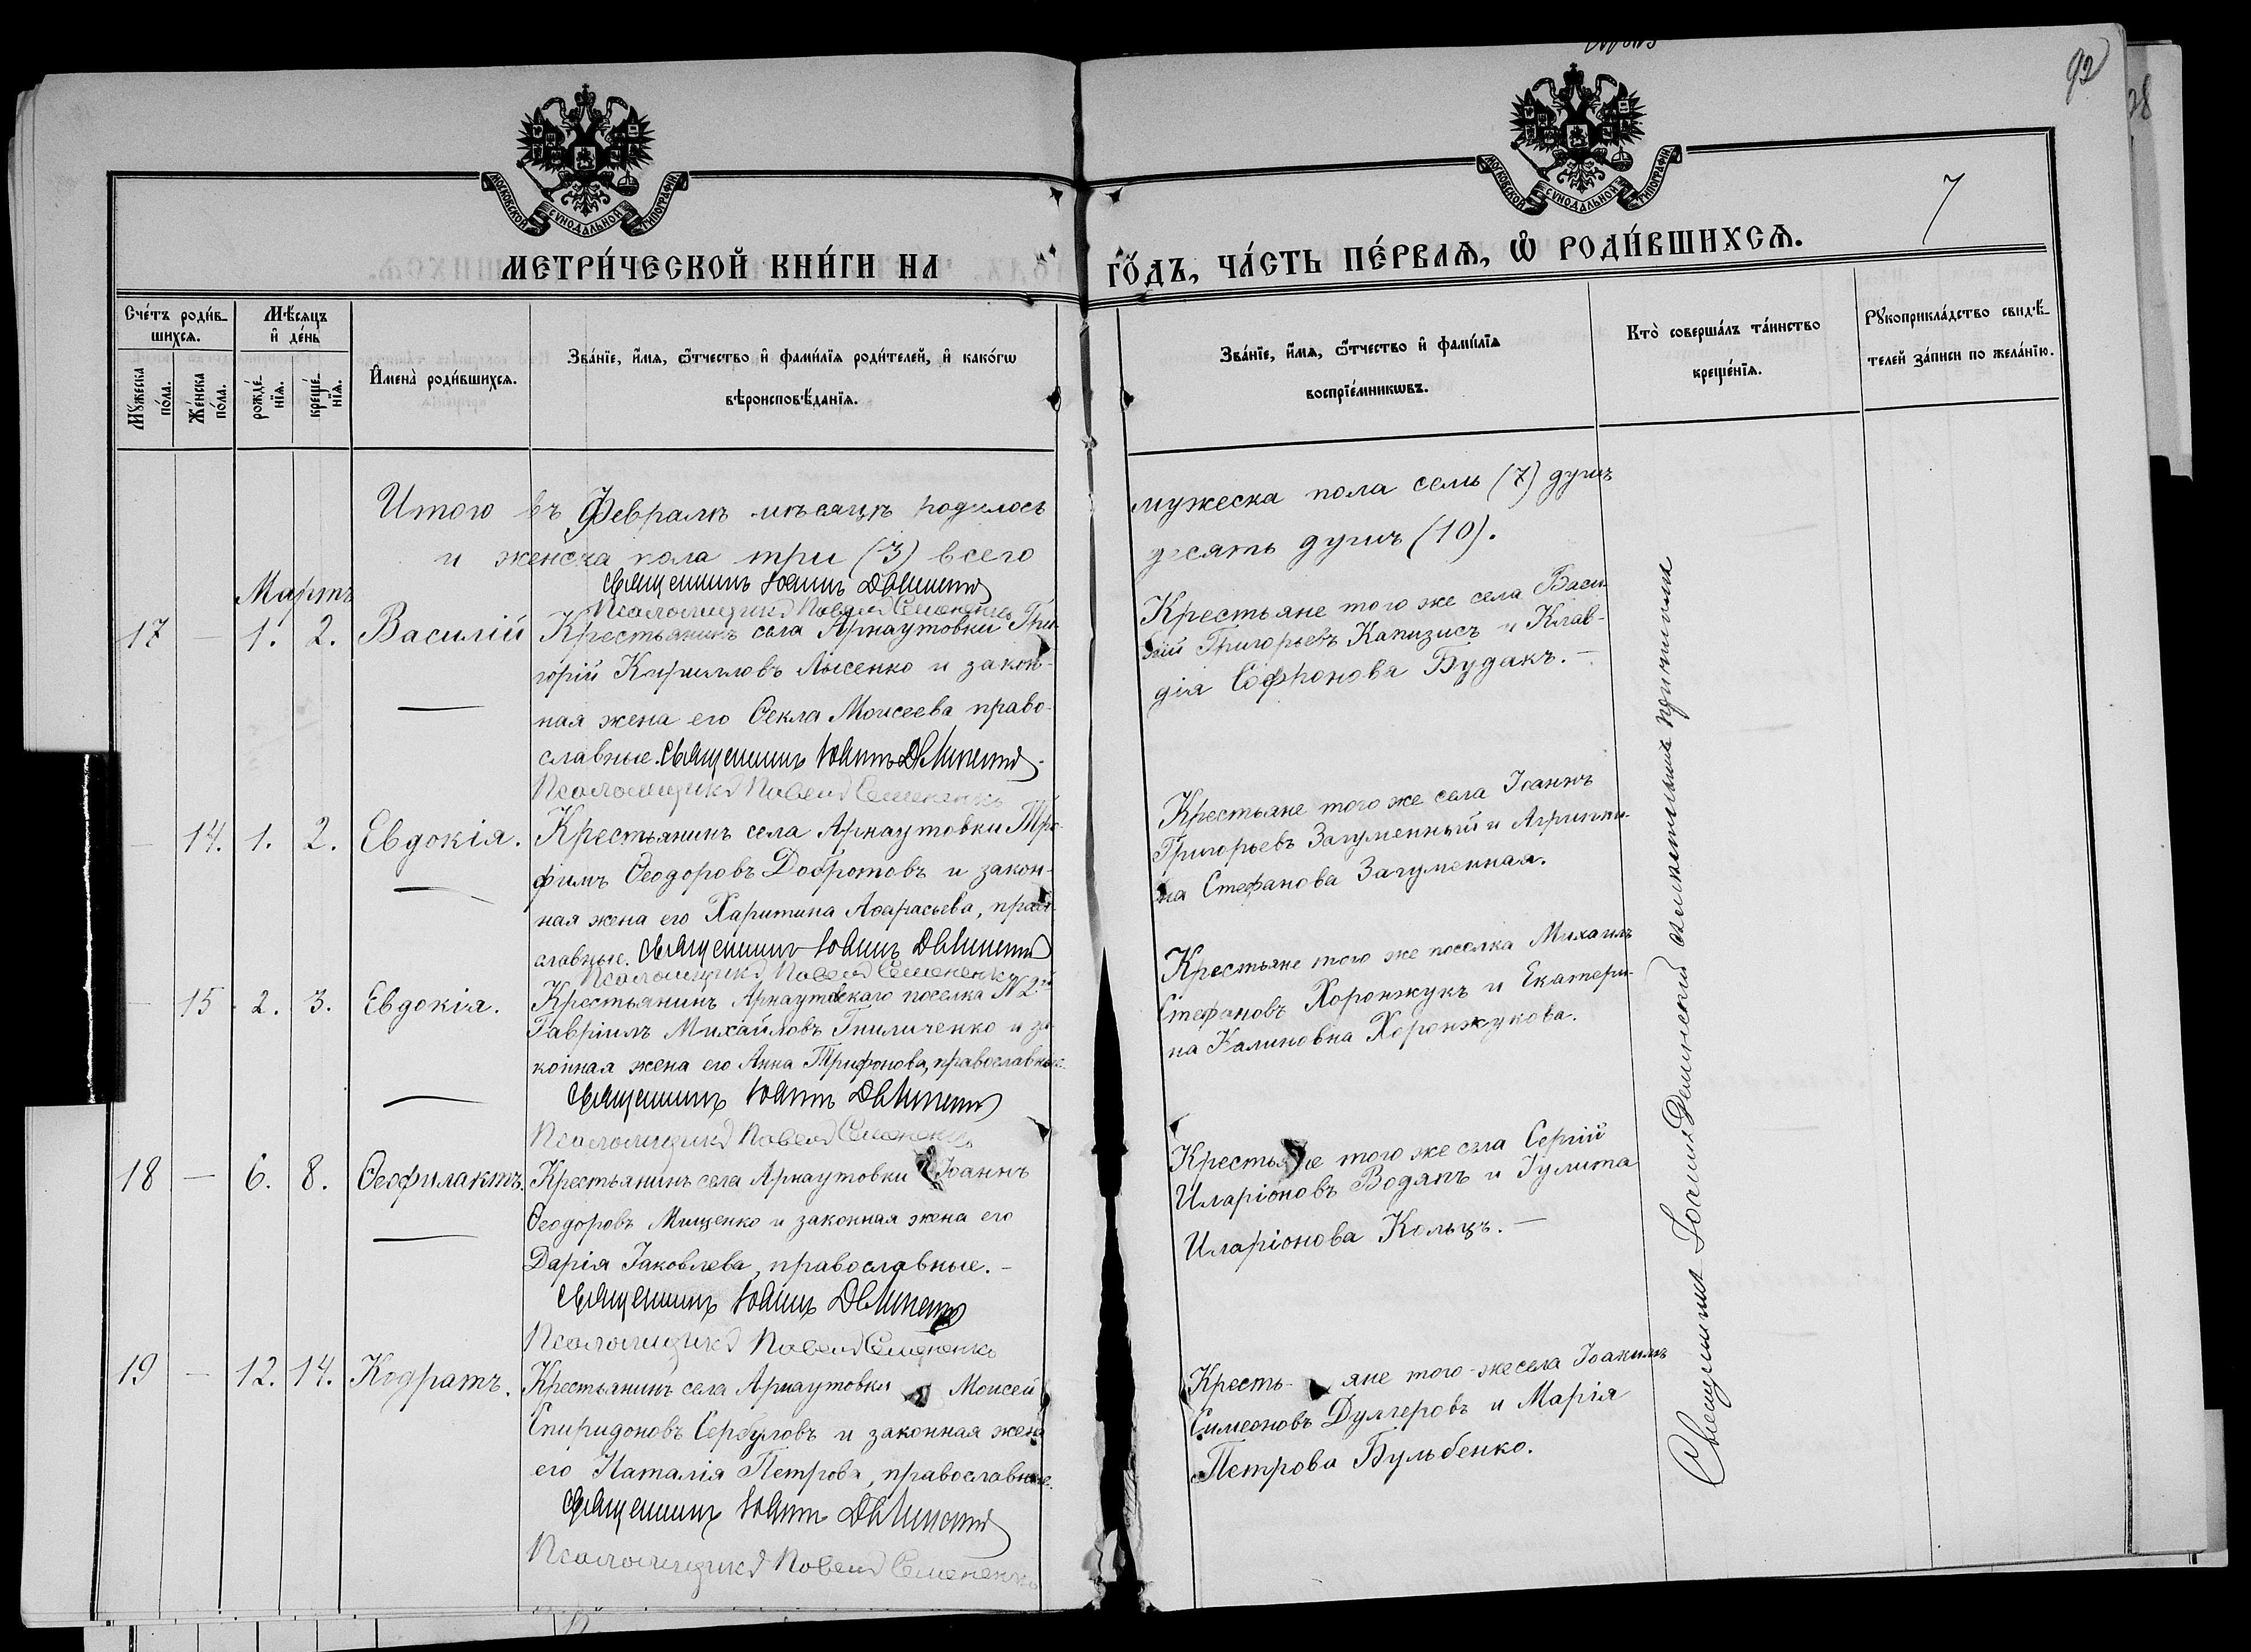 92
28
7
МОСКОВСКОЙ СѴНОДАЛЬНОЙ ТИПОГРАФІИ
МОСКОВСКОЙ СѴНОДАЛЬНОЙ ТИПОГРАФІИ
МЕТРИ́ЧЕСКОЙ КНИ́ГИ НА
ГО́ДЪ, ЧА́СТЬ ПЕ́РВАѦ, Ѡ҆ РОДИ́ВШИХСѦ.
Сче́тъ роди́в-
шихсѧ.
Мꙋ́жеска
по́ла.
Же́нска
по́ла.
Мѣ́сѧцъ
и҆ де́нь
рожде́-
нїѧ.
креще́-
нїѧ.
И҆мена̀ роди́вшихсѧ.
Зва́нїе, и҆́мѧ, ѻ҆́тчество и҆ фами́лїѧ роди́телей, и҆ како́гѡ
вѣроисповѣ́данїѧ.
Зва́нїе, и҆́мѧ, ѻ҆́тчество и҆ фами́лїѧ
воспрїе́мникѡвъ.
Кто̀ соверша́лъ та́инство
креще́нїѧ.
Рꙋкоприкла́дство свидѣ́-
телей за́писи по жела́нїю.
Итого въ Февралѣ мѣсяцѣ родилось
мужеска пола семь (7) душъ
и женска пола три (3) всего
десять душъ (10).
Священникъ Іоаннъ
Псаломщикъ Павелъ Семененко
Мартъ
17 — 1. 2. Василій
Крестьянинъ села Арнаутовки Гри-
горій Кирилловъ Лысенко и закон-
ная жена его Ѳекла Моисеева право-
славные. Священникъ Іоаннъ
Псаломщикъ Павелъ Семененко
Крестьяне того же села Васи-
лій Григорьевъ Капизисъ и Клав-
дія Софронова Будакъ. —
— 14. 1. 2. Евдокія.
Крестьянинъ села Арнаутовки Тро-
фимъ Ѳеодоровъ Добротовъ и закон-
ная жена его Харитина Аѳанасьева, правос-
лавные. Священникъ Іоаннъ
Псаломщикъ Павелъ Семененко
Крестьяне того же села Іоаннъ
Григорьевъ Загуменный и Агриппи-
на Стефанова Загуменная.
— 15 2. 3. Евдокія.
Крестьянинъ Арнаутовскаго поселка N 2й
Гавріилъ Михайловъ Гниличенко и за-
конная жена его Анна Трифонова, православные.
Священникъ Іоаннъ
Псаломщикъ Павелъ Семененко
Крестьяне того же поселка Михаилъ
Стефановъ Хоронжукъ и Екатери-
на Калиновна Хоронжукова.
18 — 6. 8. Ѳеофилактъ.
Крестьянинъ села Арнаутовки Іоаннъ
Ѳеодоровъ Мищенко и законная жена его
Дарія Іаковлева, православные. —
Священникъ Іоаннъ
Псаломщикъ Павелъ Семененко
Крестьяне того же села Сергій
Иларіоновъ Водянъ и Іулита
Иларіонова Кольцъ. —
19 — 12. 14. Кодратъ.
Крестьянинъ села Арнаутовки Моисей
Спиридоновъ Сербуловъ и законная жена
его Наталія Петрова, православные.
Священникъ Іоаннъ
Псаломщикъ Павелъ Семененко
Кресть- яне того-же села Іоакимъ
Симеоновъ Дулгеровъ и Марія
Петрова Бульбенко.
Священникъ Іоаннъ